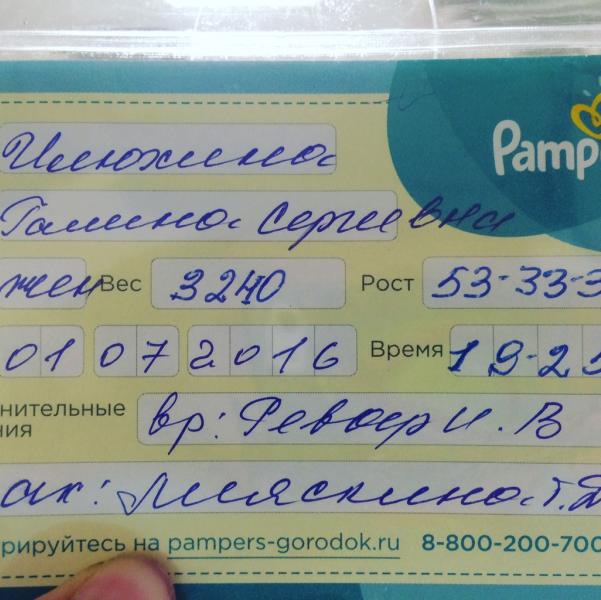 Pamp
Илюхина
Галина Сергеевна
жен Вес 3240 Рост 53-33-3
01 07 2016 Время 19-25
нительные
ния
вр: И.В
ак: Т.
рируйтесь на pampers-gorodok.ru 8-800-200-700